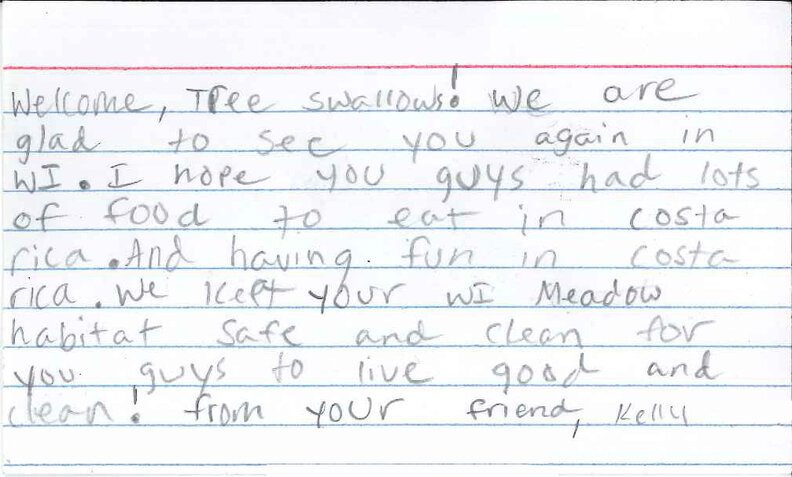 Welcome, Tree swallows! We are
glad to see you again in
WI. I hope you guys had lots
of food to eat in costa
rica. And having fun in costa
rica. We kept your WI Meadow
habitat safe and clean for
you guys to live good and
clean! from your friend, Kelly